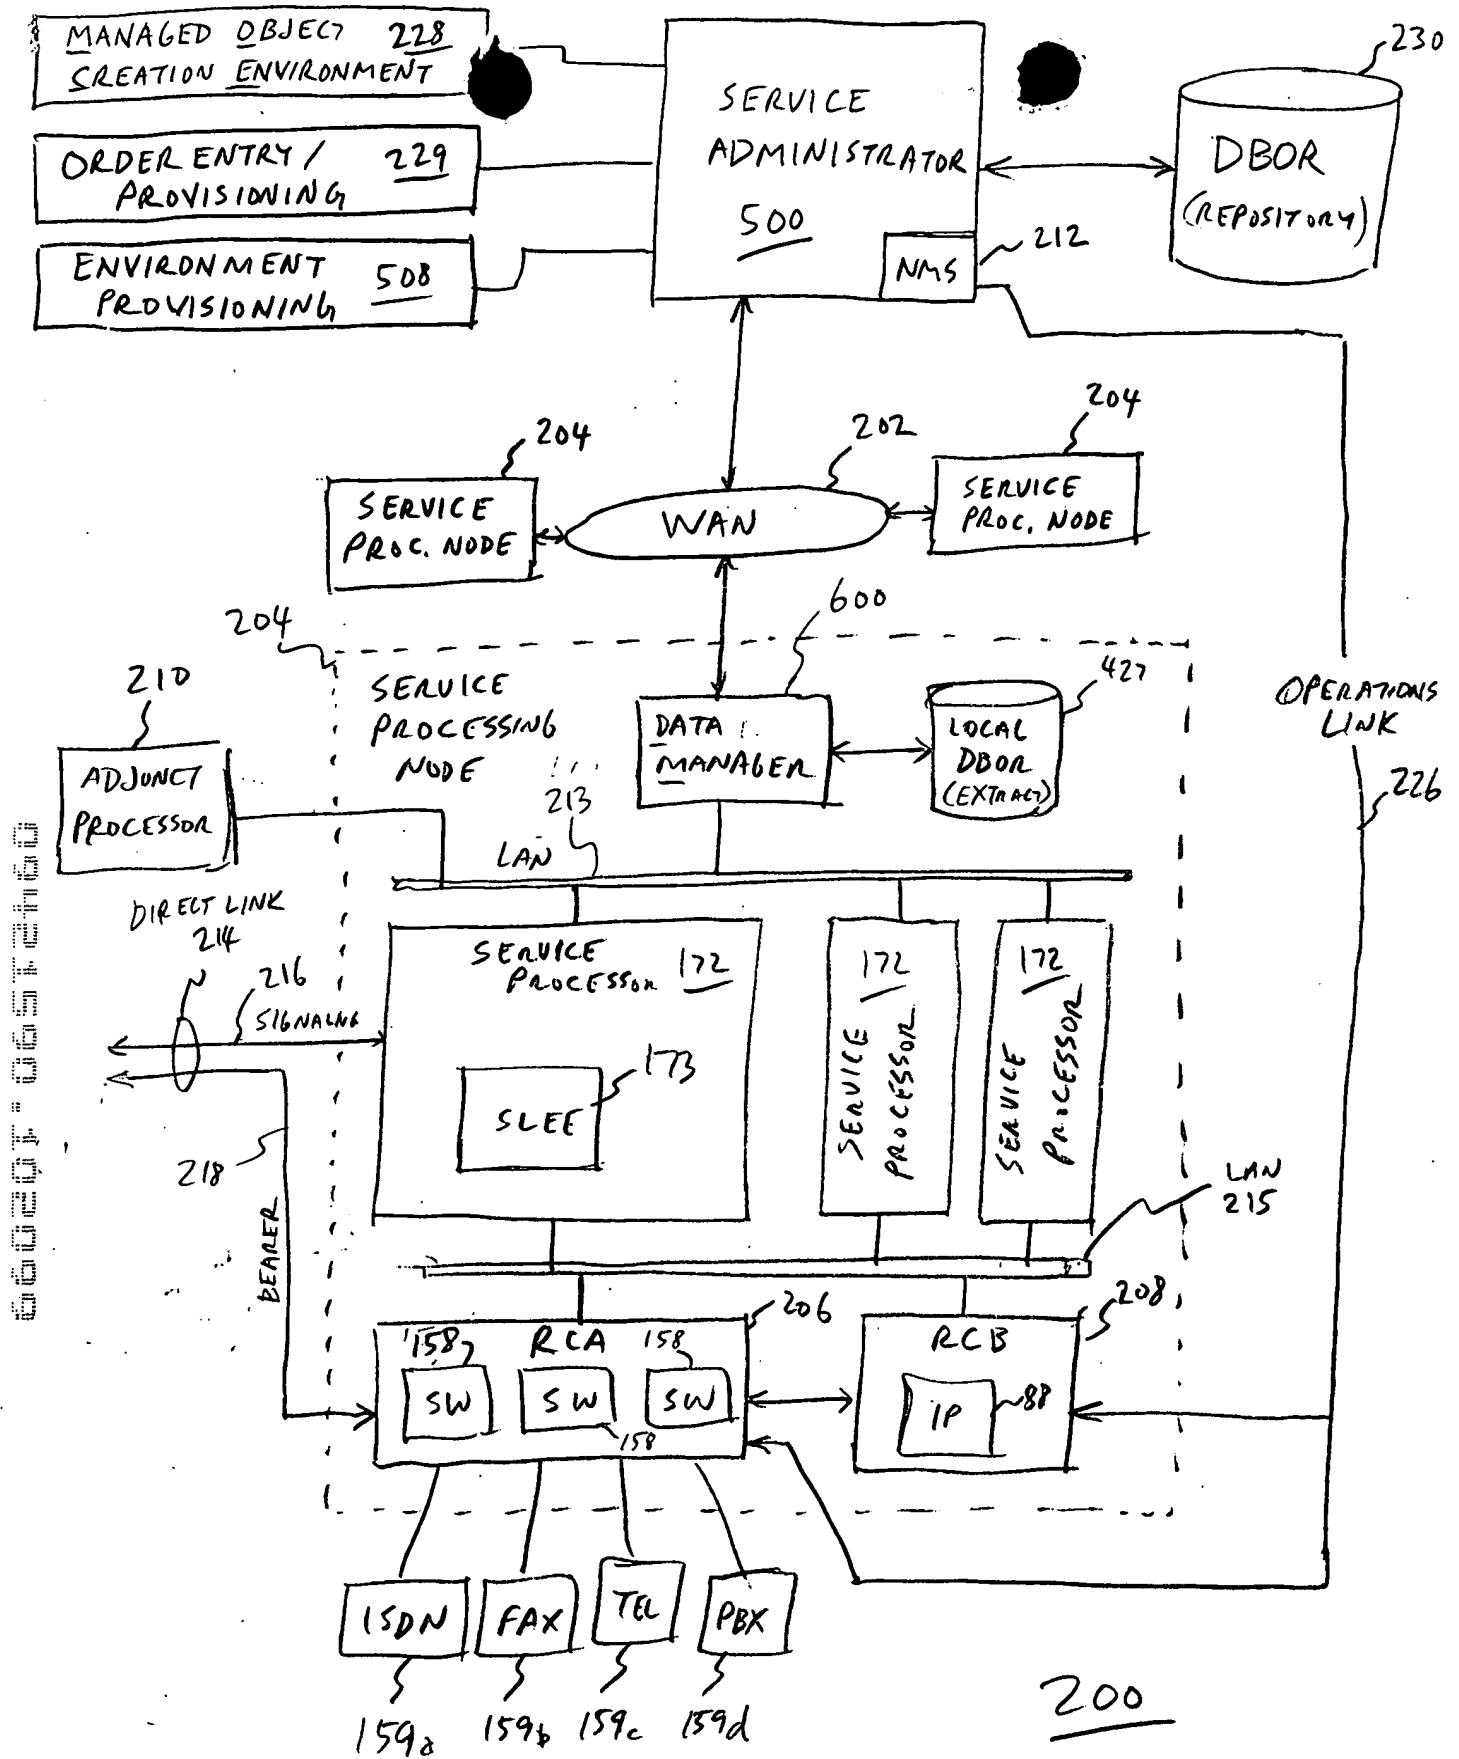 MANAGED OBJECT 228
CREATION ENVIRONMENT
ORDER ENTRY / 229
PROVISIONING
ENVIRONMENT 508
PROVISIONING
SERVICE
ADMINISTRATOR
500
NMS
212
230
DBOR
(REPOSITORY)
204
SERVICE
PROC. NODE
202
WAN
204
SERVICE
PROC. NODE
600
204
SERVICE
PROCESSING
NODE
210
ADJUNCT
PROCESSOR
DATA
MANAGER
427
LOCAL
DBOR
(EXTRACT)
OPERATIONS
LINK
226
213
LAN
DIRECT LINK
214
216
SIGNALNG
218
BEARER
SERVICE
PROCESSOR 172
173
SLEE
172
SERVICE
PROCESSOR
172
SERVICE
PROCESSOR
LAN
215
206
RCA
158
SW
SW
158
158
SW
208
RCB
IP
88
ISDN
FAX
TEL
PBX
159a
159b
159c
159d
200